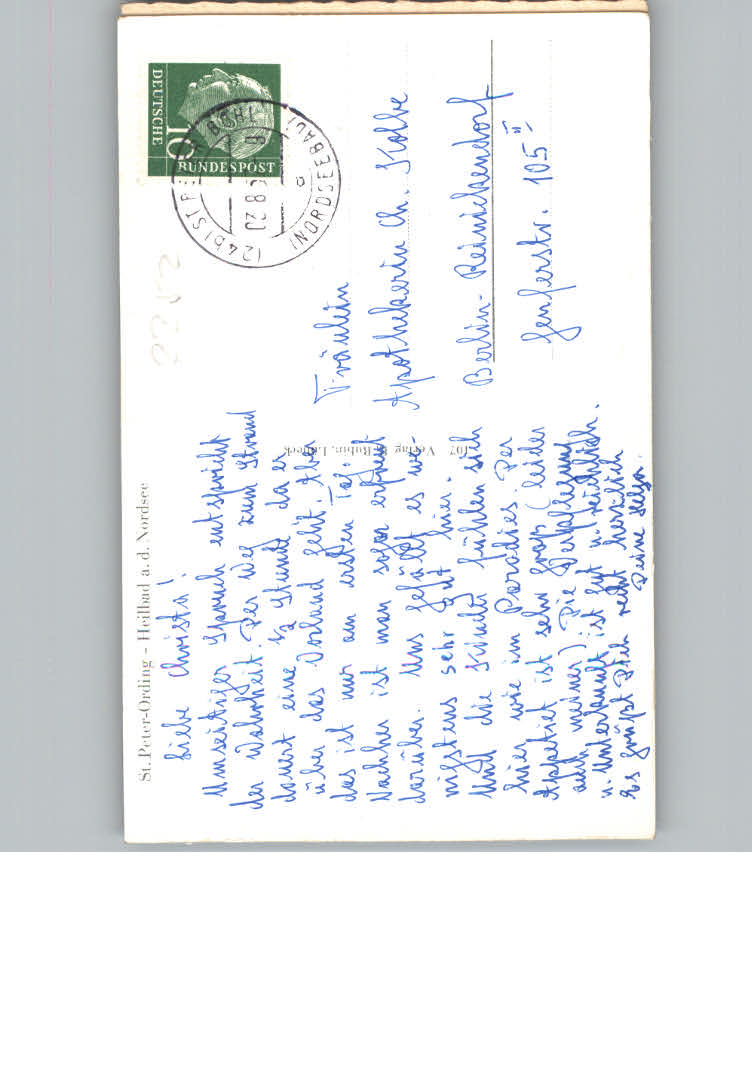 St. Peter-Ording - Heilbad a. d. Nordsee
Liebe Christa!
Umseitiger Spruch entspricht
der Wahrheit. Der Weg zum Strand
dauert eine 1/2 Stunde da es
über das Vorland geht. Aber
das ist nur am ersten Tag.
Nachher ist man sogar erfreut
darüber. Uns gefällt es we-
nigstens sehr gut hier.
Und die Schuller fühlen sich
hier wie im Paradies. Der
Appetiet ist sehr groß (leider
auch meiner) Die Verpflegung
u. Unterkunft ist gut u. reichlich.
Es grüßt Dich recht herzlich
Deine Helga.
107 Verlag Rubin, Lübeck
DEUTSCHE
BUNDESPOST
10
(24b) ST. PETER
(NORDSEEBAD)
a
Fräulein
Apothekerin Ch. Kolbe
Berlin-Reinickendorf
Genferstr. 105 II